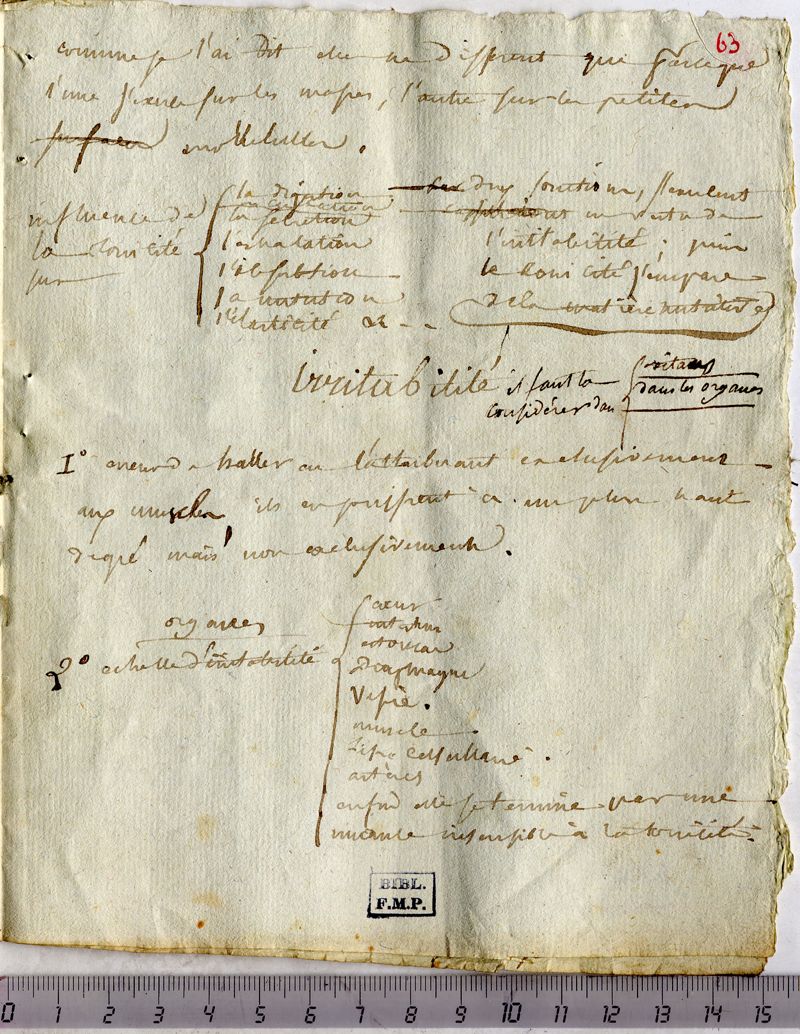 63
comme je l'ai dit elle ne different que parceque
l'une s'exerce sur les masses, l'autre sur les petites
molecules.
influence de
la tonicité
sur
la digestion
la circulation
la secretion
l'exalation
l'absorbtion
la nutrition
l'elasticité &c - -
des fonctions, s'exercent
en vertu de
l'irritabilité. puis
la tonicité s'empare
de la matiere nutritive
irritabilité il faut la
considérer dans
dans les organes
1° erreur de haller en l'attribuant exclusivement
aux muscles ils en jouissent à un plus haut
degré mais non exclusivement.
organes
2° echelle d'irritabilité
cœur
intestins
estomac
diafragme
Vessie.
muscle.
tissu cellullaire.
artères
enfin elle se termine par une
nuance insensible à la tonicité.
BIBL.
F.M.P.
0 1 2 3 4 5 6 7 8 9 10 11 12 13 14 15